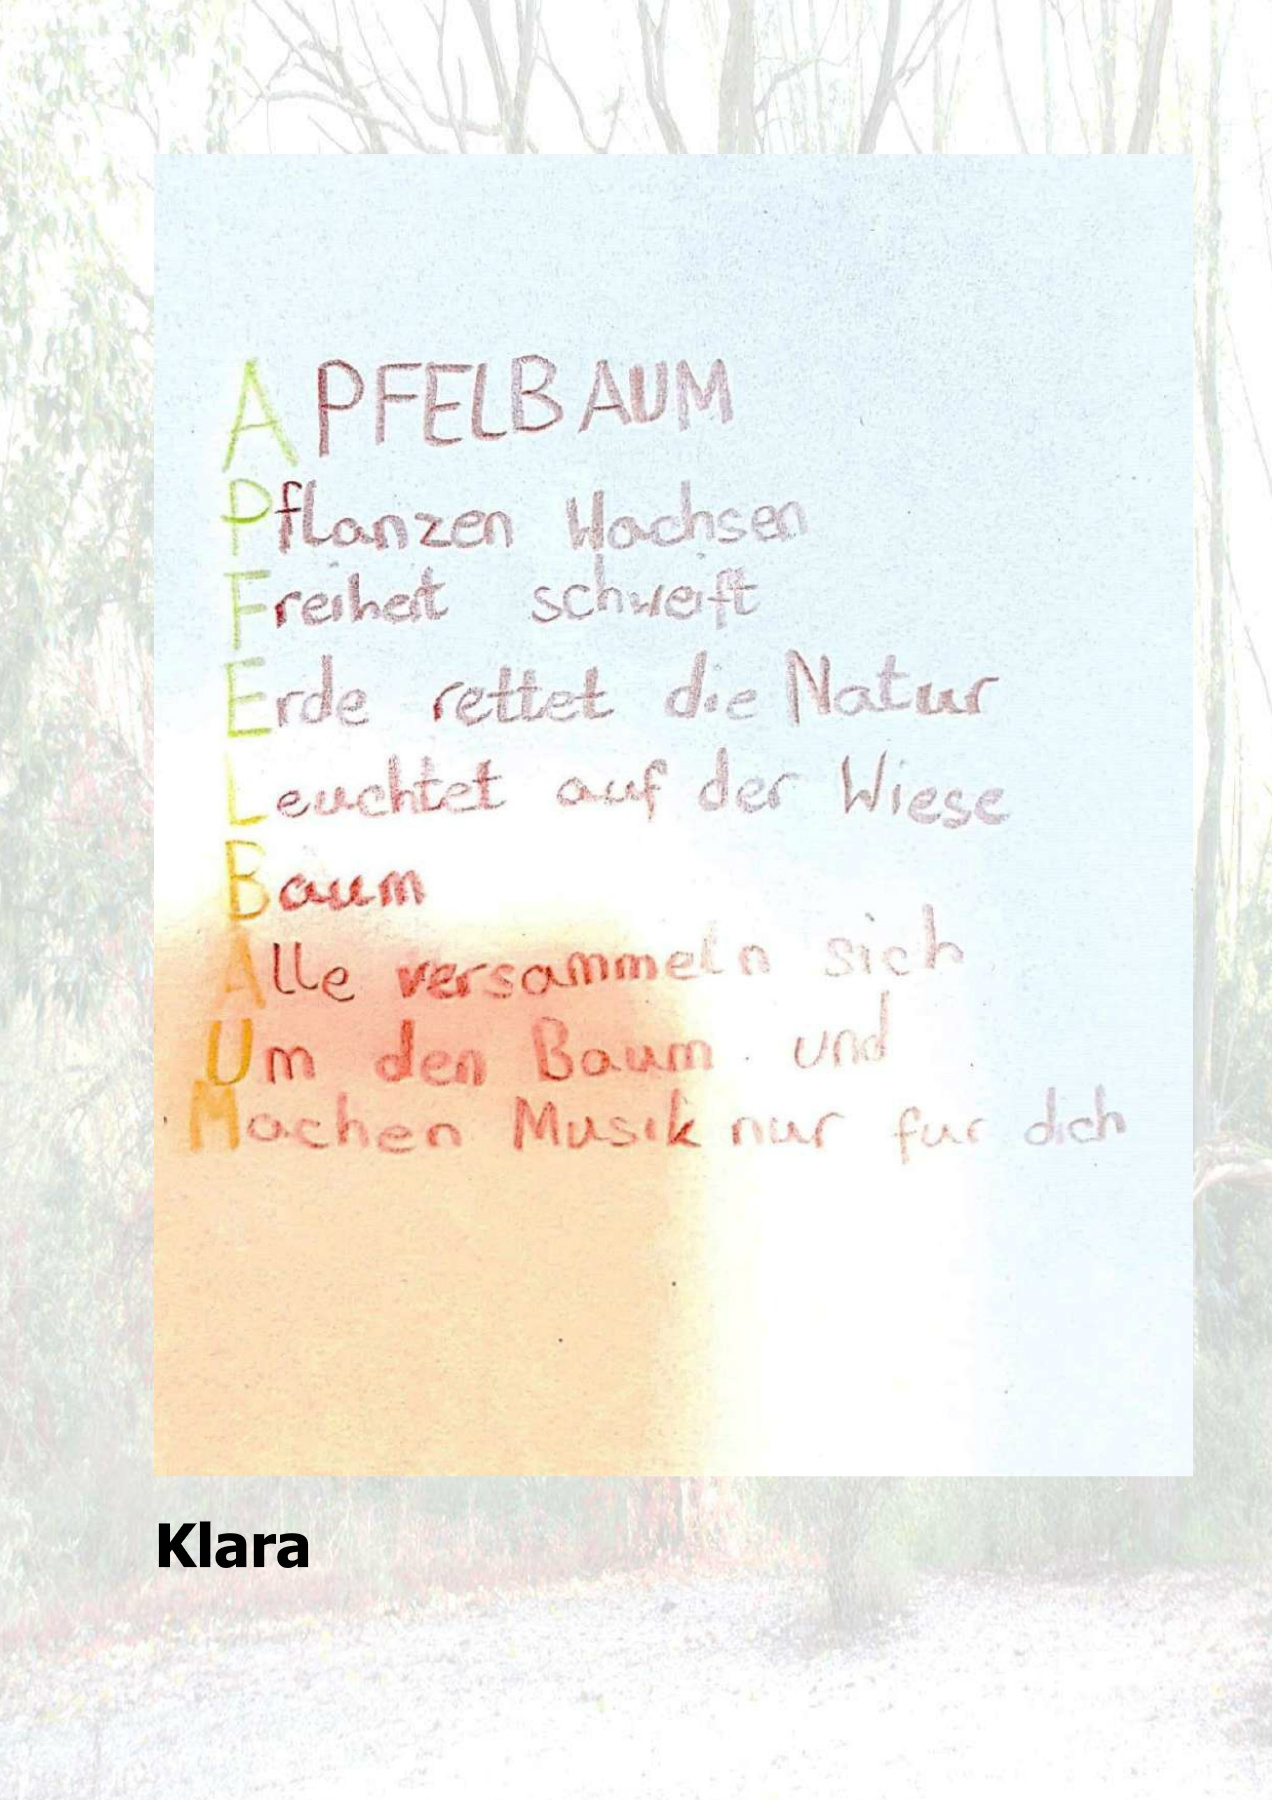 APFELBAUM
Pflanzen Wachsen
Freiheit schweift
Erde rettet die Natur
Leuchtet auf der Wiese
Baum
Alle versammeln sich
Um den Baum und
Machen Musik nur fur dich
Klara